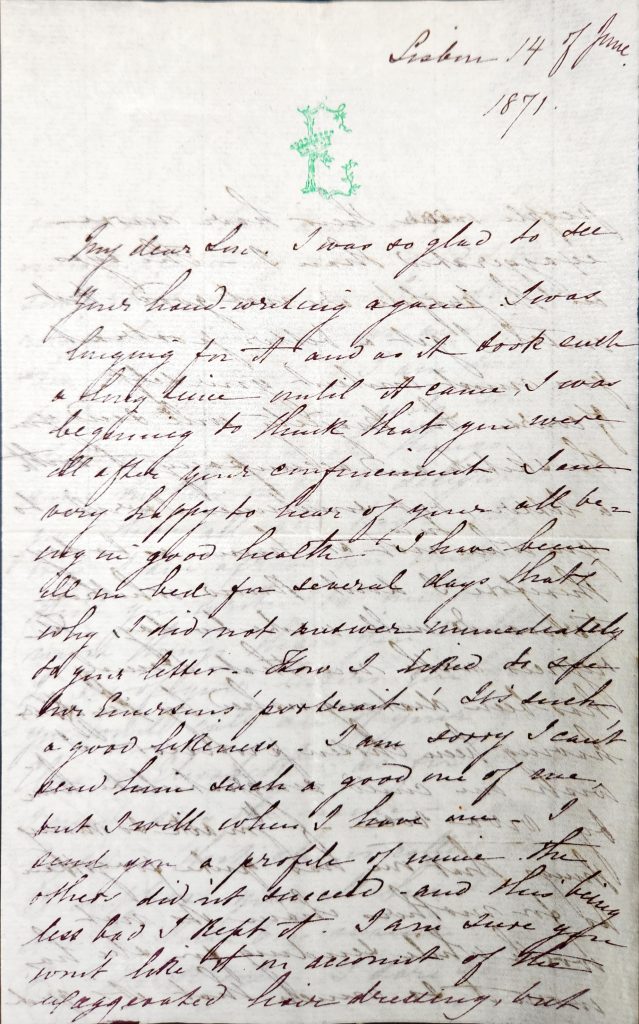 Lisbon 14 of June.
1871.
E
My dear Lin. I was so glad to see
Your hand-writing again. I was
longing for it and as it took such
a long time until it came, I was
beginning to think that you were
ill after your confinement I am
very happy to hear of your all be-
ing in good health. I have been
ill in bed for several days that's
why I did not answer immediately
to your letter. How I liked to see
Emersons' portrait! Its such
a good likeness. I am sorry I can't
send him such a good one of me,
but I will when I have one. I
send you a profile of mine the
others did'nt succeed and this being
less bad I kept it I am sure you
won't like it on account of the
exaggerated hair dressing, but